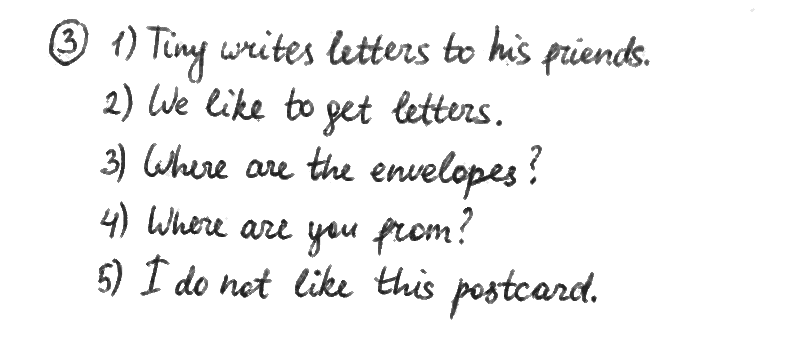 ③ 1) Tiny writes letters to his friends.
2) We like to get letters.
3) Where are the envelopes?
4) Where are you from?
5) I do not like this postcard.